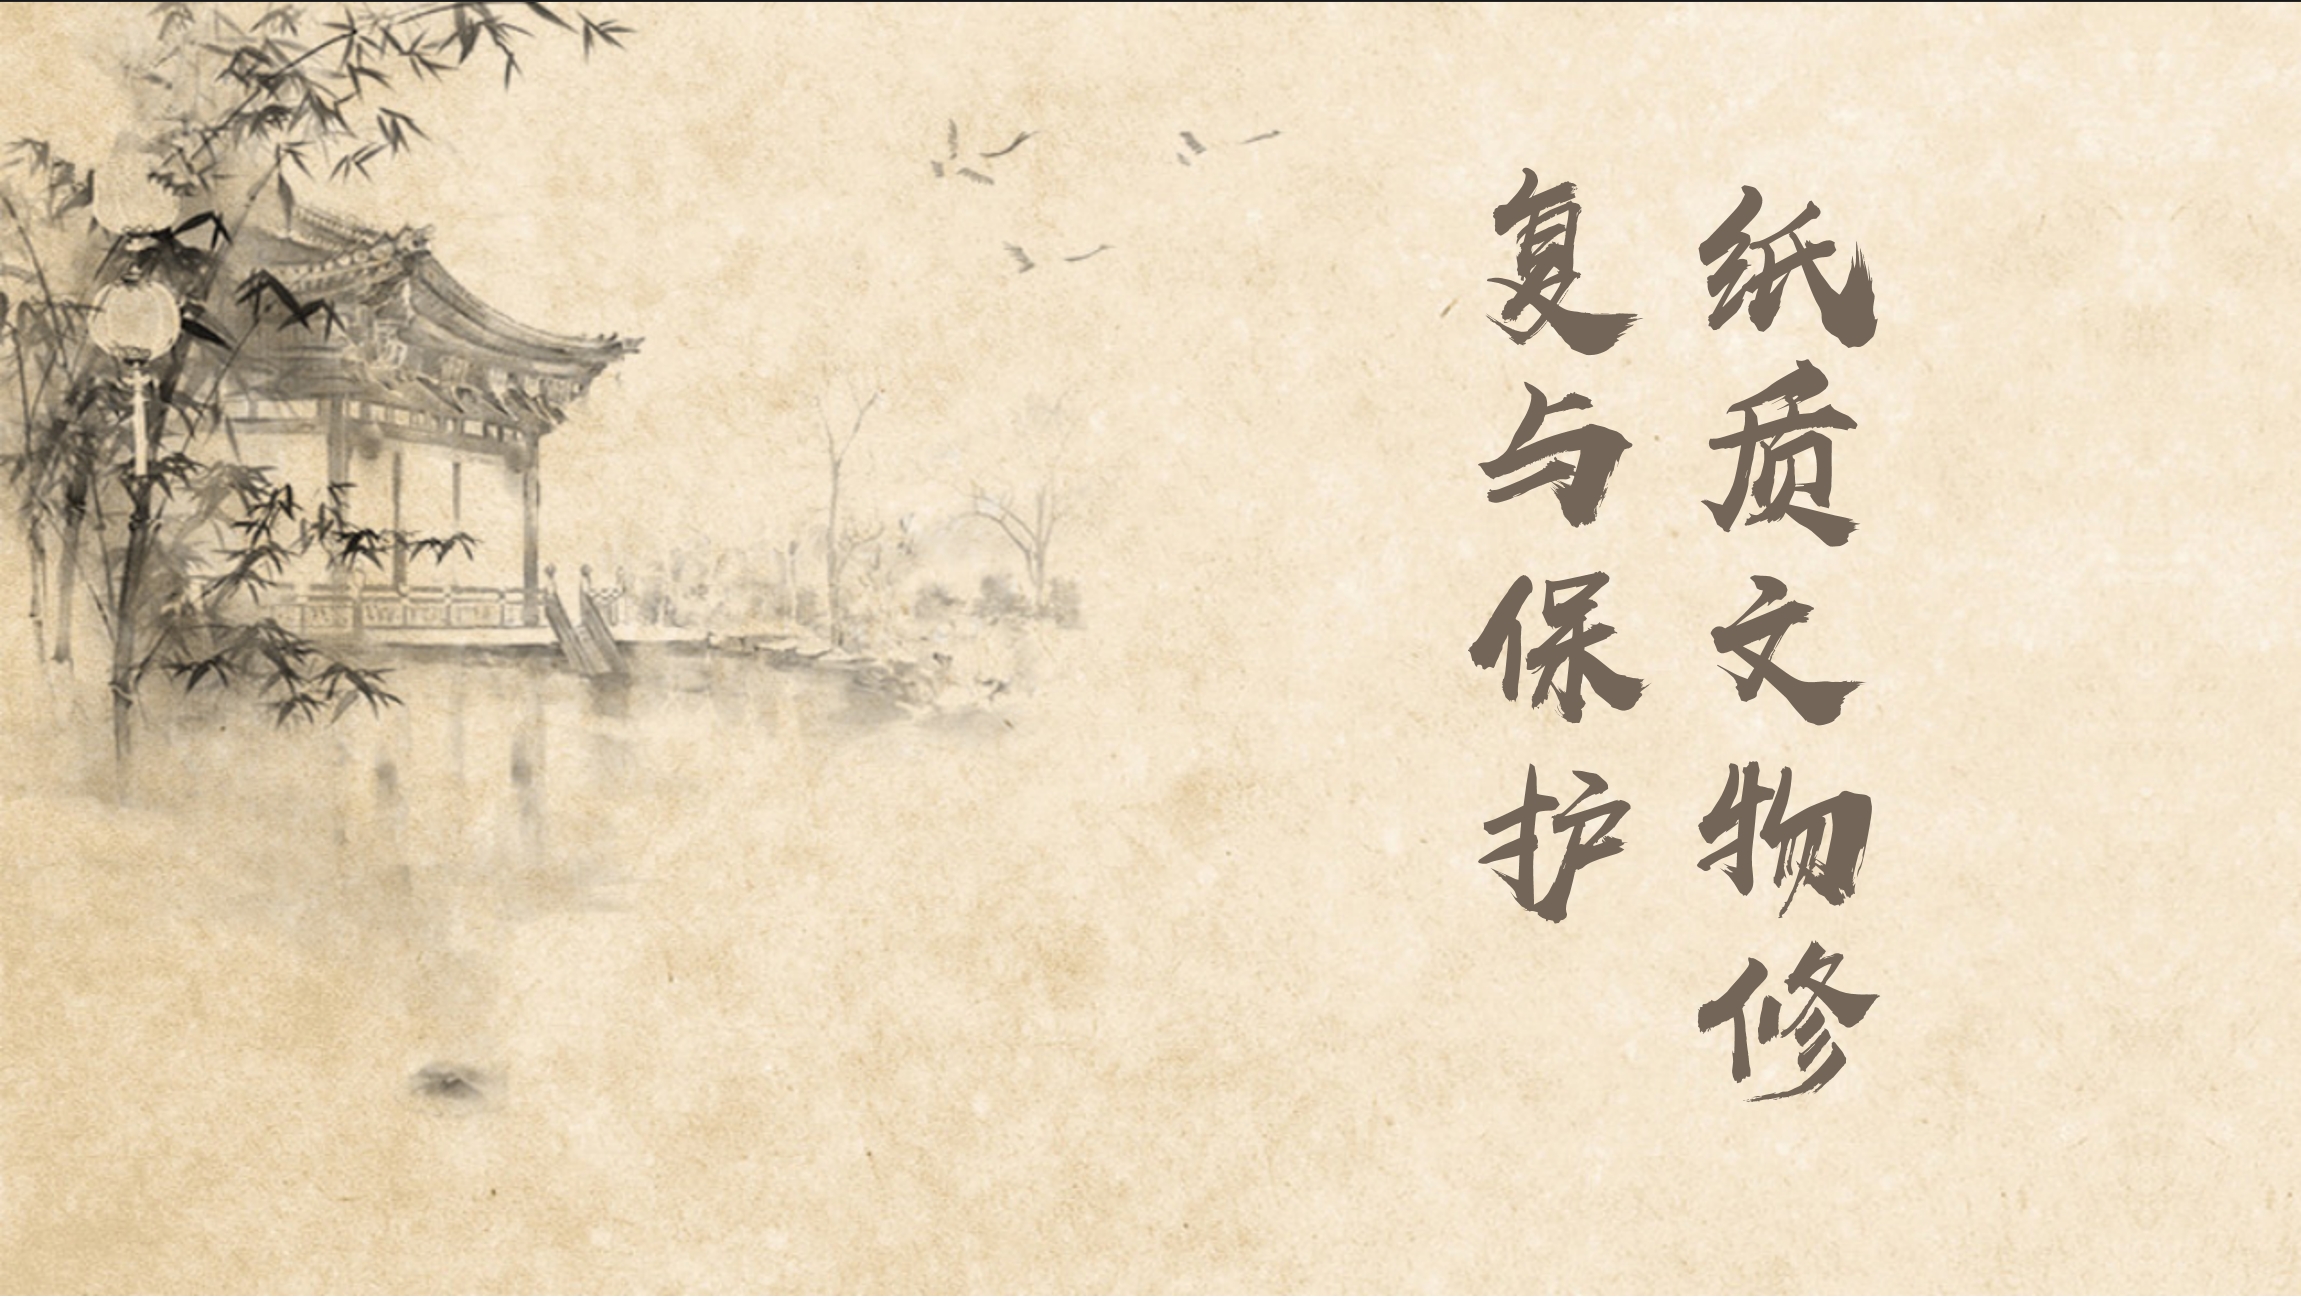 纸质文物修
复与保护